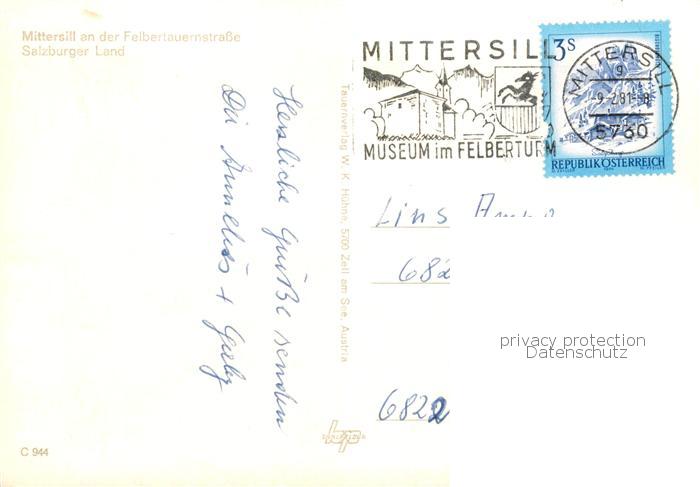 Mittersill an der Felbertauernstraße
Salzburger Land
MITTERSILL
MUSEUM im FELBERTURM
3S
MITTERSILL
9
-9-2.81-8
5730
REPUBLIK ÖSTERREICH
Herzliche Grüße senden
Die Annelies + Gaby
Tauernverlag W. K. Hühne, 5700 Zell am See, Austria
Lins
682
6822
privacy protection
Datenschutz
bp
C 944